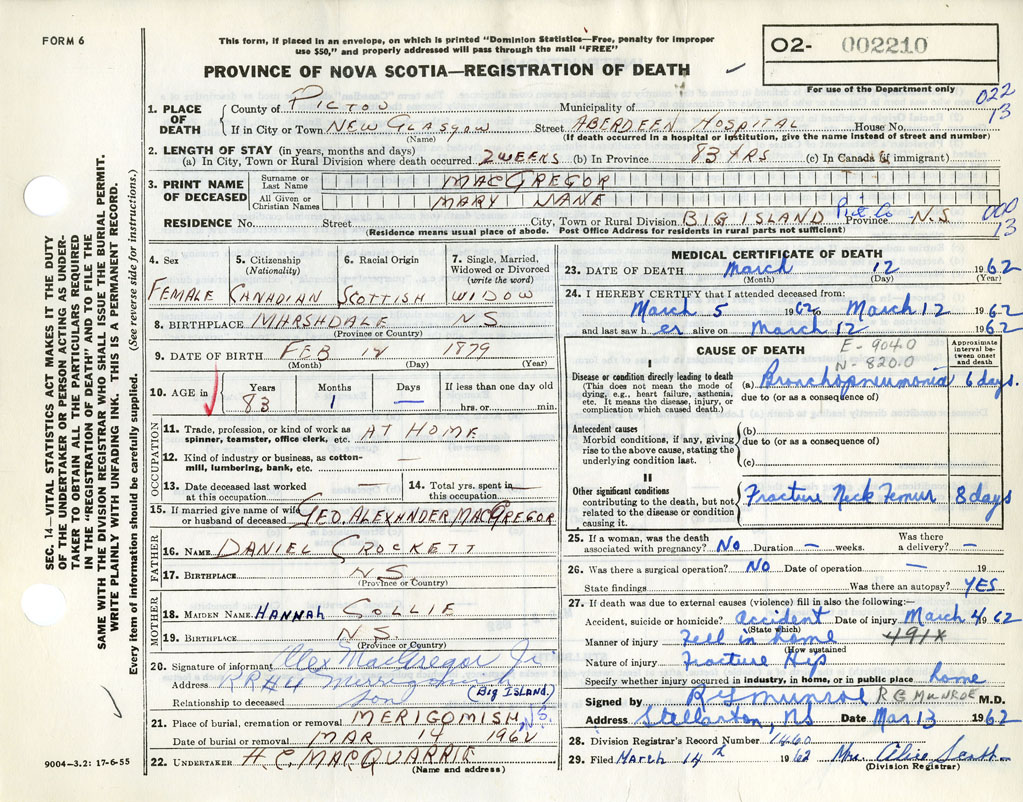 FORM 6
This form, if placed in an envelope, on which is printed "Dominion Statistics—Free, penalty for improper
use $50," and properly addressed will pass through the mail "FREE"
PROVINCE OF NOVA SCOTIA—REGISTRATION OF DEATH
O2- 002210
For use of the Department only
022
13
SEC. 14—VITAL STATISTICS ACT MAKES IT THE DUTY
OF THE UNDERTAKER OR PERSON ACTING AS UNDER-
TAKER TO OBTAIN ALL THE PARTICULARS REQUIRED
IN THE "REGISTRATION OF DEATH" AND TO FILE THE
SAME WITH THE DIVISION REGISTRAR WHO SHALL ISSUE THE BURIAL PERMIT.
WRITE PLAINLY WITH UNFADING INK. THIS IS A PERMANENT RECORD.
Every item of information should be carefully supplied. (See reverse side for instructions.)
1. PLACE OF DEATH
County of PICTOU Municipality of
If in City or Town NEW GLASGOW Street ABERDEEN HOSPITAL House No.
(Name) (If death occurred in a hospital or institution, give the name instead of street and number)
2. LENGTH OF STAY (in years, months and days)
(a) In City, Town or Rural Division where death occurred 2 WEEKS (b) In Province 83 YRS (c) In Canada (if immigrant)
3. PRINT NAME OF DECEASED
Surname or Last Name MACGREGOR
All Given or Christian Names MARY JANE
RESIDENCE No. Street City, Town or Rural Division BIG ISLAND Pict Co Province N.S 000
13
(Residence means usual place of abode. Post Office Address for residents in rural parts not sufficient)
4. Sex 5. Citizenship (Nationality) 6. Racial Origin 7. Single, Married, Widowed or Divorced (write the word)
FEMALE CANADIAN SCOTTISH WIDOW
8. BIRTHPLACE MARSHDALE NS
(Province or Country)
9. DATE OF BIRTH FEB 12 1879
(Month) (Day) (Year)
10. AGE in Years Months Days If less than one day old
83 1 — hrs. or min.
OCCUPATION
11. Trade, profession, or kind of work as
spinner, teamster, office clerk, etc. AT HOME
12. Kind of industry or business, as cotton-
mill, lumbering, bank, etc. —
13. Date deceased last worked at this occupation — 14. Total yrs. spent in this occupation —
15. If married give name of wife
or husband of deceased GEO. ALEXANDER MACGREGOR
FATHER
16. NAME DANIEL CROCKETT
17. BIRTHPLACE N S.
(Province or Country)
MOTHER
18. MAIDEN NAME HANNAH COLLIE
19. BIRTHPLACE N S.
(Province or Country)
20. Signature of informant Alex MacGregor Jr
Address RR#4 Merigomish
Relationship to deceased son (Big Island.)
21. Place of burial, cremation or removal MERIGOMISH, N S.
Date of burial or removal MAR 14 1962
22. UNDERTAKER H. C. MACQUARRIE
(Name and address)
9004—3.2: 17-6-55
MEDICAL CERTIFICATE OF DEATH
23. DATE OF DEATH March 12 1962
(Month) (Day) (Year)
24. I HEREBY CERTIFY that I attended deceased from:
March 5 1962 to March 12 1962
and last saw her alive on March 12 1962
CAUSE OF DEATH E-9040
N-820.0
Approximate interval between onset and death
I
Disease or condition directly leading to death (a) Bronchopneumonia 6 days.
(This does not mean the mode of dying, e.g., heart failure, asthenia, etc. It means the disease, injury, or complication which caused death.)
due to (or as a consequence of)
Antecedent causes
Morbid conditions, if any, giving rise to the above cause, stating the underlying condition last.
(b)
due to (or as a consequence of)
(c)
II
Other significant conditions
contributing to the death, but not related to the disease or condition causing it.
Fracture Neck Femur 8 days
25. If a woman, was the death associated with pregnancy? No Duration — weeks. Was there a delivery? —
26. Was there a surgical operation? No Date of operation — 19
State findings Was there an autopsy? YES
27. If death was due to external causes (violence) fill in also the following:—
Accident, suicide or homicide? accident Date of injury March 4 1962
(State which)
Manner of injury Fell in home 491X
(How sustained)
Nature of injury Fracture Hip
Specify whether injury occurred in industry, in home, or in public place home
Signed by R G Munroe R G MUNROE M.D.
Address Stellarton, NS Date Mar 13 1962
28. Division Registrar's Record Number 1460
29. Filed March 14th 1962 Mrs. Alice
(Division Registrar)